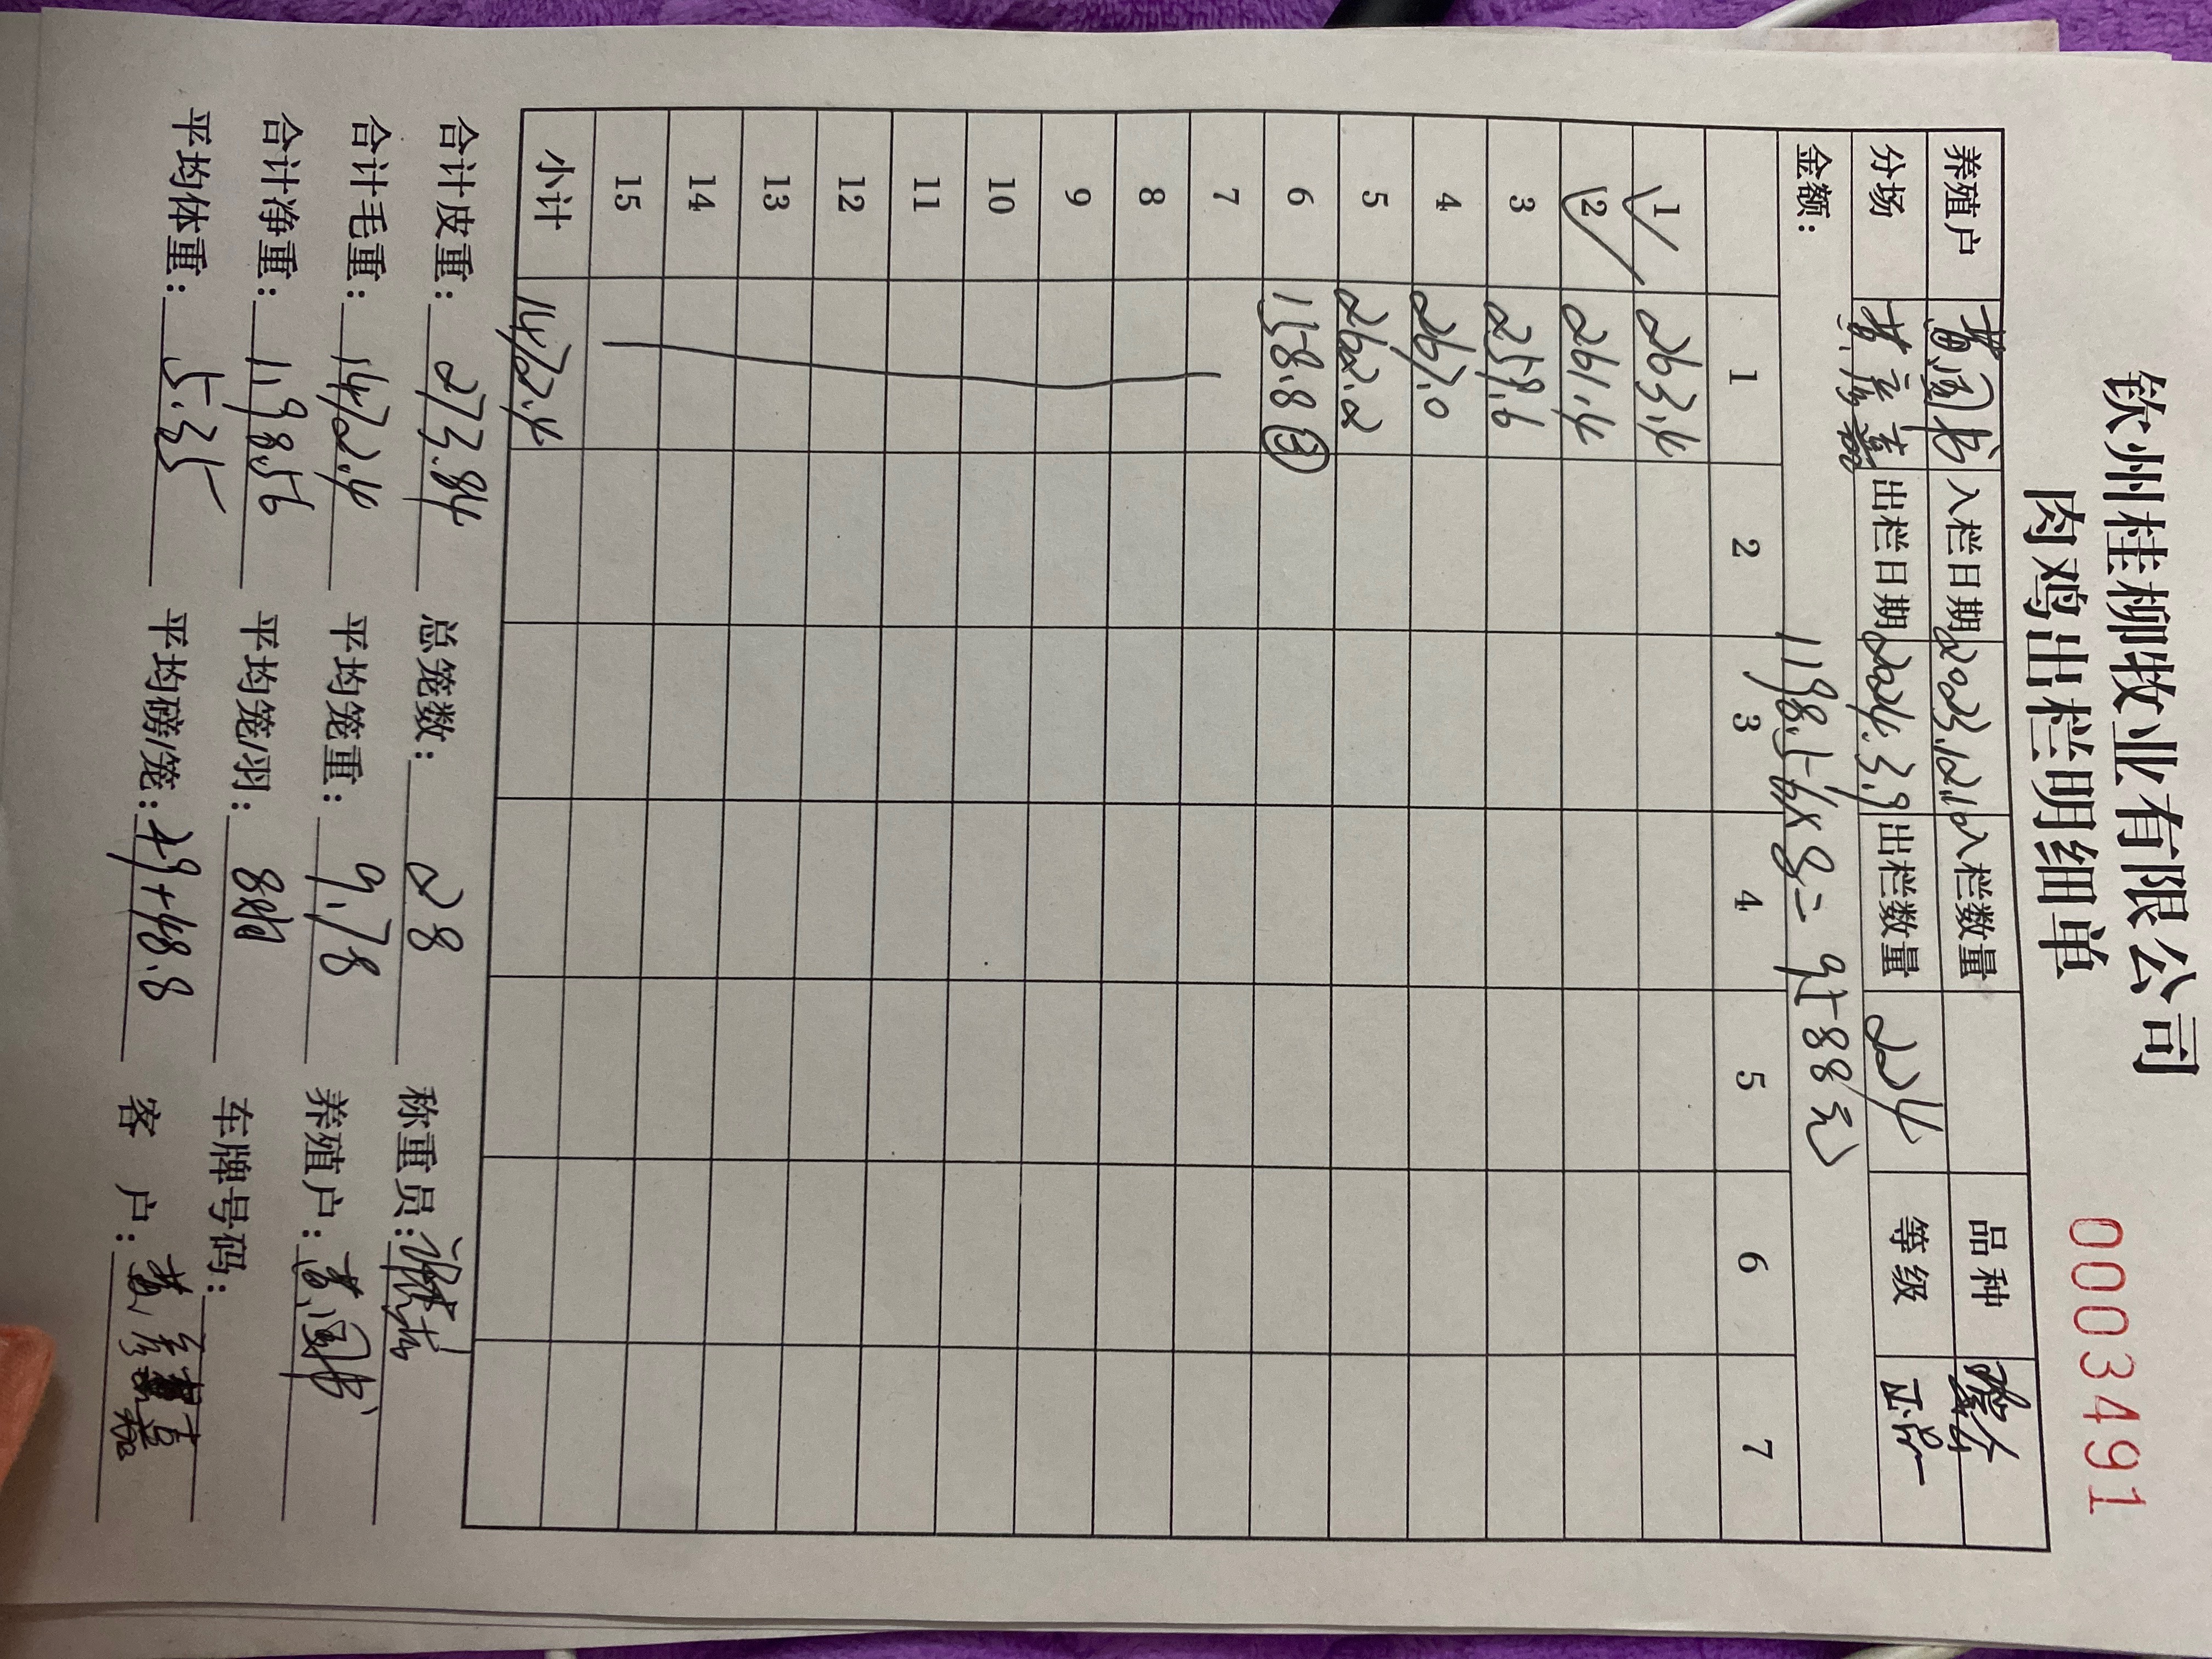 钦州桂柳牧业有限公司
肉鸡出栏明细单
0003491
养殖户 黄国书 入栏日期 2023.12.10 入栏数量 品种
分场 出栏日期 2024.3.9 出栏数量 224 等级 正品
金额： 1198.56×8= 9588元
1 2 3 4 5 6 7
1 263.4
2 261.4
3 259.6
4 267.0
5 262.2
6 158.8 ③
7
8
9
10
11
12
13
14
15
小计 1472.4
合计皮重： 273.84 总笼数： 28 称重员：
合计毛重： 1472.4 平均笼重： 9.78 养殖户： 黄国书
合计净重： 1198.56 平均笼/羽： 8 车牌号码：
平均体重： 5.35 平均磅/笼： +48.8 客户： 黄